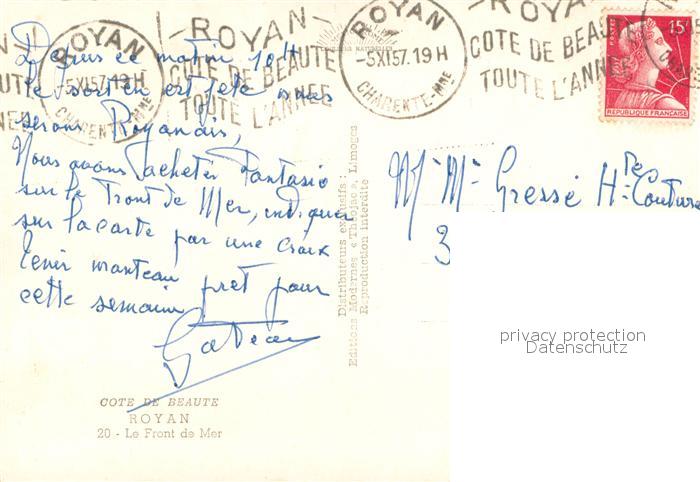 ROYAN
-5XI57.19H
CHARENTE-MME
-ROYAN-
COTE DE BEAUTE
TOUTE L'ANNEE
ROYAN
-5XI57.19H
CHARENTE-MME
-ROYAN-
COTE DE BEAUTE
TOUTE L'ANNEE
15F
REPUBLIQUE FRANÇAISE
Depuis ce matin 10H
le sort en est jeté nous
serons Royandais,
Nous avons acheter Fantasio
sur le Front de Mer, indiquer
sur la carte par une croix
Tenir manteau pret pour
cette semaine
Gateau
COTE DE BEAUTE
ROYAN
20 - Le Front de Mer
Distributeurs exclusifs :
Editions Modernes « Théojac », Limoges
Reproduction interdite
Mr Mme Gressé Hte Couture
3
privacy protection
Datenschutz